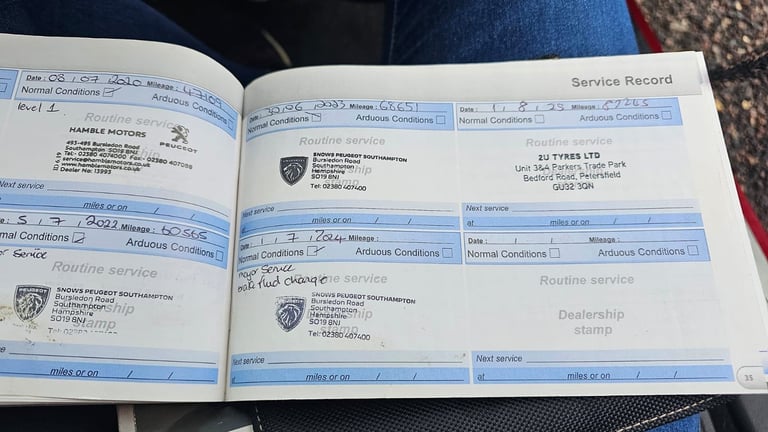 Date : 08 / 07 / 2020 Mileage : 47109
Normal Conditions Arduous Conditions
level 1
Routine service
HAMBLE MOTORS
PEUGEOT
493-495 Bursledon Road
Southampton SO19 8NJ
Tel: 02380 4074000 Fax: 02380 407058
service@hamblemotors.co.uk
www.hamblemotors.co.uk
Dealer No: 13993
Next service
miles or on / /
5 / 7 / 2022 Mileage : 60565
Normal Conditions Arduous Conditions
Service
Routine service
PEUGEOT
SNOWS PEUGEOT SOUTHAMPTON
Bursledon Road
Southampton
Hampshire
SO19 8NJ
stamp
Next service
miles or on / /
Service Record
Date : 30 / 06 / 2023 Mileage : 68651
Normal Conditions Arduous Conditions
Routine service
SNOWS PEUGEOT SOUTHAMPTON
Bursledon Road
Southampton
Hampshire
SO19 8NJ
Tel: 02380 407400
Next service
at miles or on / /
Date : 1 / 7 / 2024 Mileage :
Normal Conditions Arduous Conditions
major Service
brake fluid change
Routine service
SNOWS PEUGEOT SOUTHAMPTON
Bursledon Road
Southampton
Hampshire
SO19 8NJ
Tel: 02380 407400
stamp
Next service
at miles or on / /
Date : 1 / 8 / 25 Mileage :
Normal Conditions Arduous Conditions
Routine service
2U TYRES LTD
Unit 3&4 Parkers Trade Park
Bedford Road, Petersfield
GU32 3QN
Next service
at miles or on / /
Date : / / Mileage :
Normal Conditions Arduous Conditions
Routine service
Dealership
stamp
Next service
at miles or on / /
35